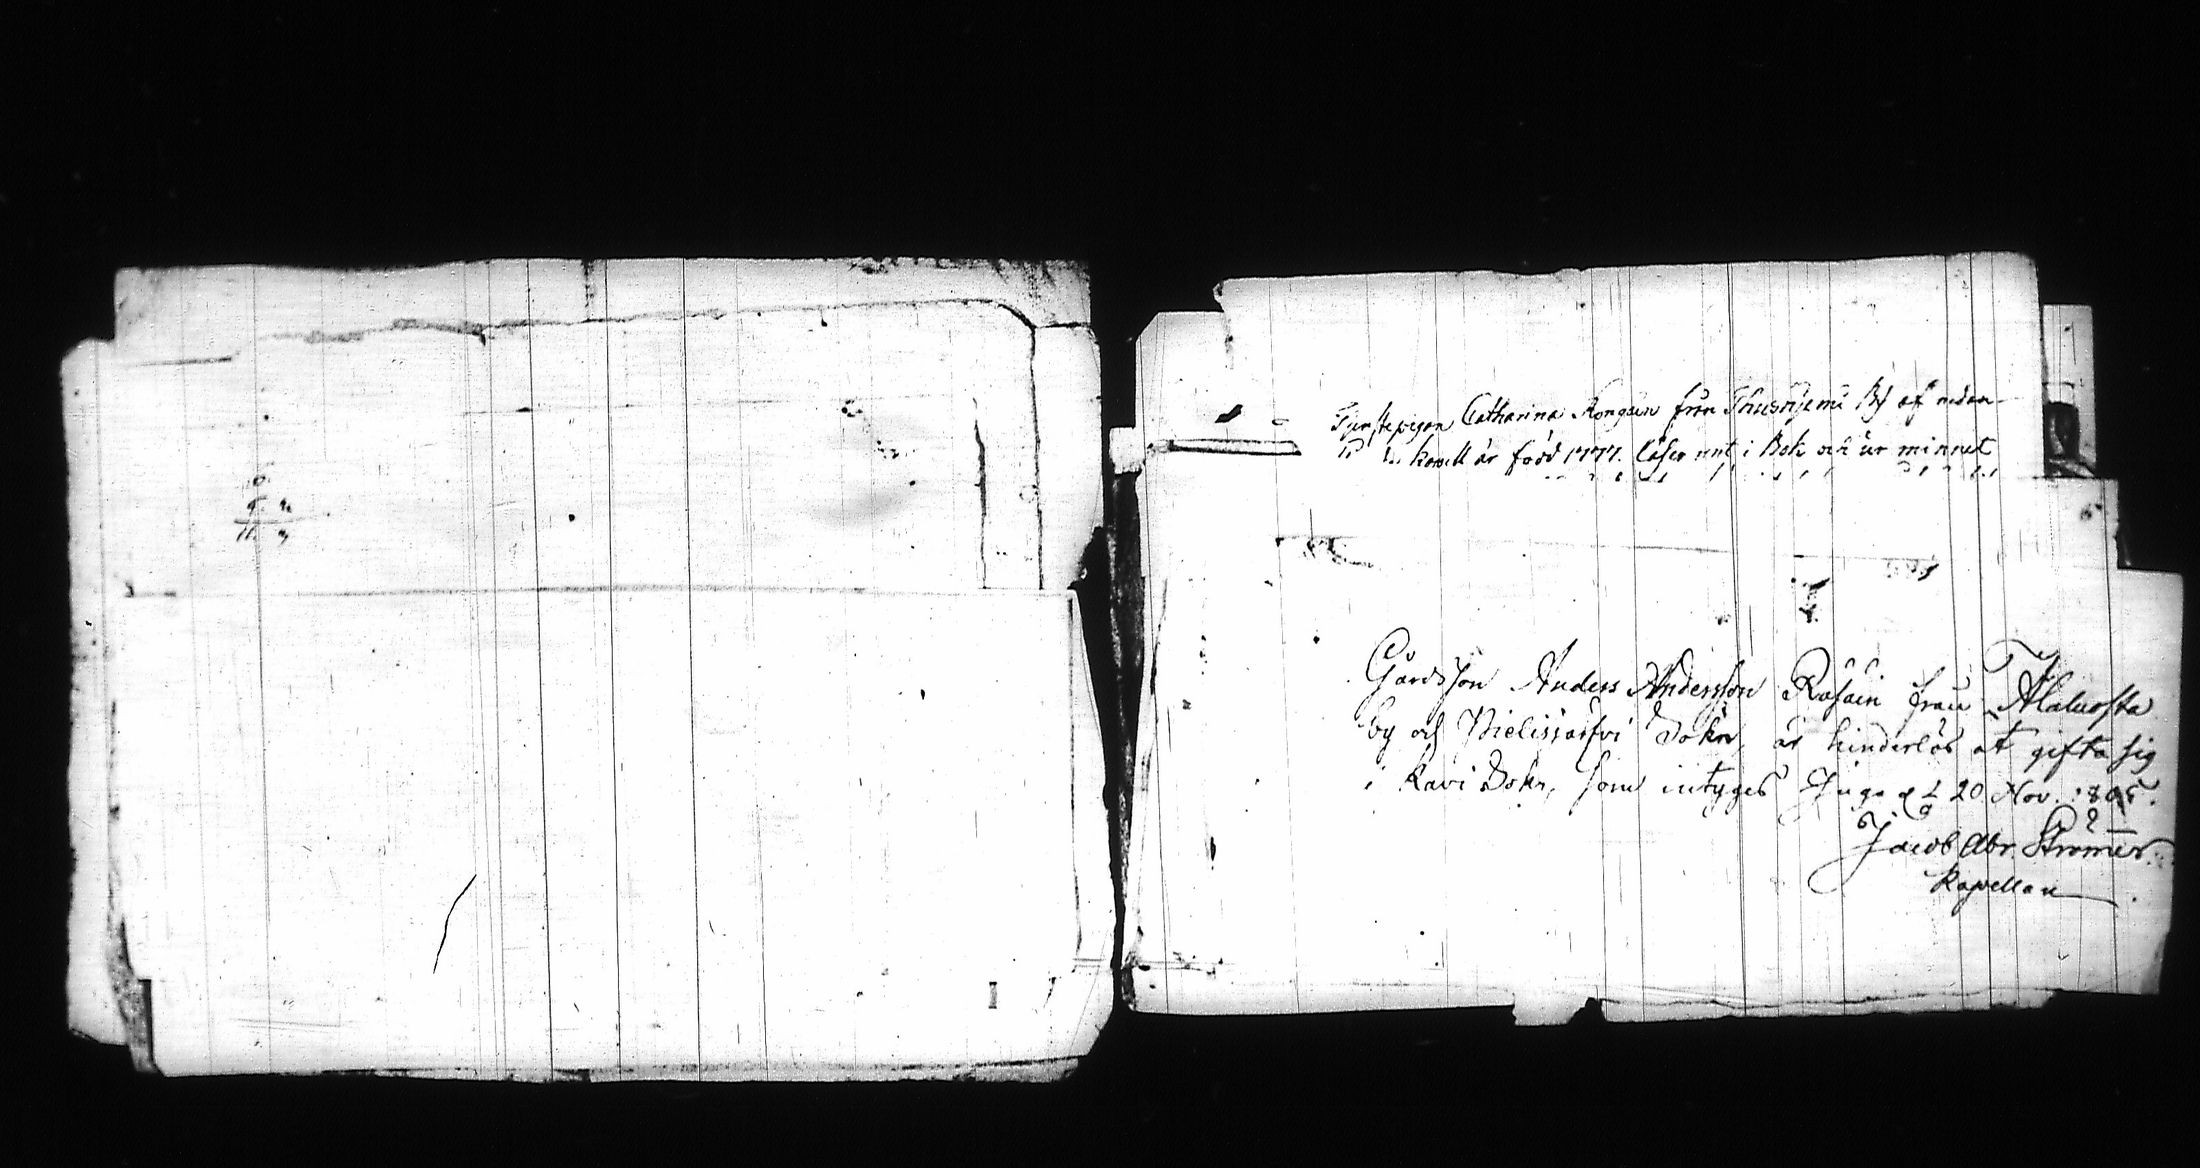 6
9. 2
11. 3
Tjenstepigan Catharina Kongain från Thusniemi By af nedan-
kapell är född 1777. läser nöt i Bok och ur minnet
6
Gårdsson Anders Andersson Räsäin från Ahlaluosta
by och Pielisjärfvi Sokn, är hinderlös at gifta sig
i Kavi Sokn, som intygas Juga d 20 Nov. 1805.
Jacob Abr. Strömer.
Kapellan